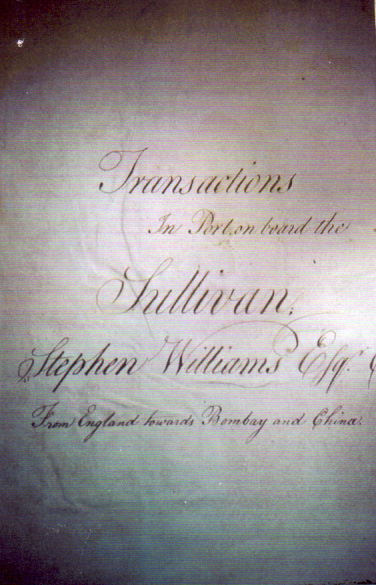 Transactions
In Port, on board the
Sullivan,
Stephen Williams Esqr.
From England towards Bombay and China.